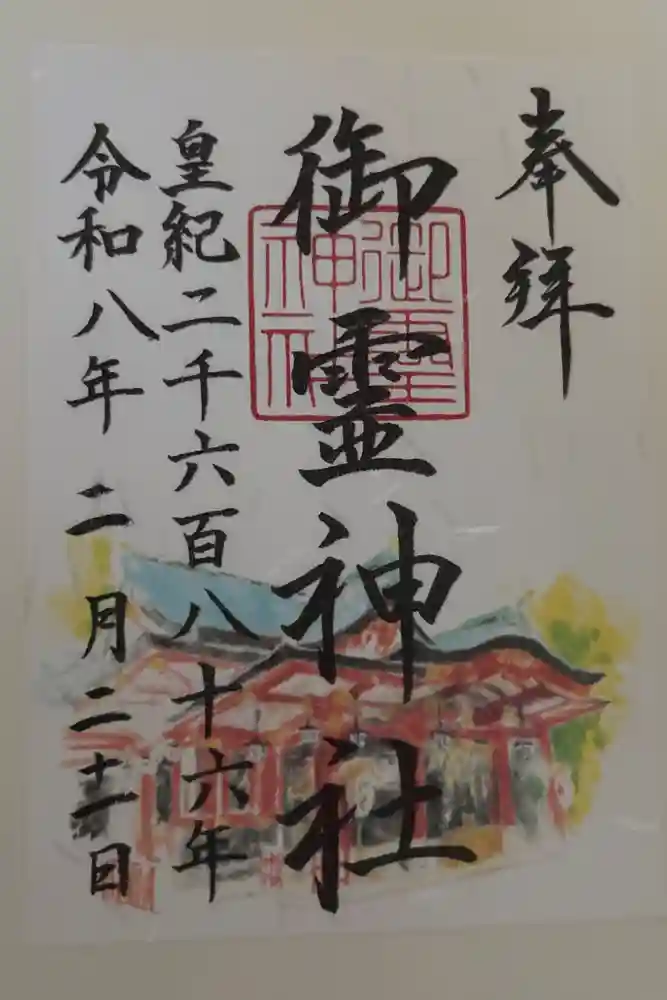 奉拝
御霊神社
御霊
神社
皇紀二千六百八十六年
令和八年 二月二十一日